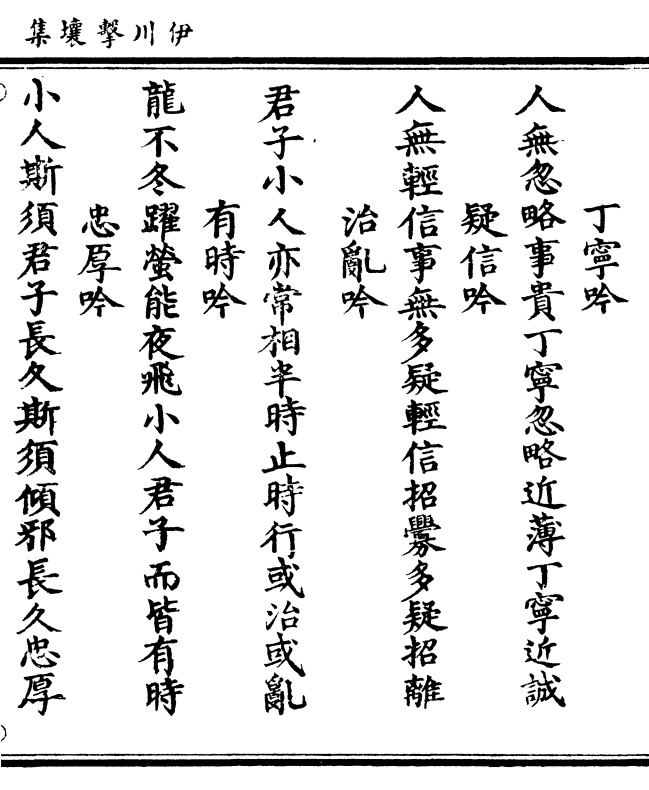 伊川擊壤集
丁寧吟
人無忽略事貴丁寧忽略近薄丁寧近誠
疑信吟
人無輕信事無多疑輕信招釁多疑招離
治亂吟
君子小人亦常相半時止時行或治或亂
有時吟
龍不冬躍螢能夜飛小人君子而皆有時
忠厚吟
小人斯須君子長久斯須傾邪長久忠厚